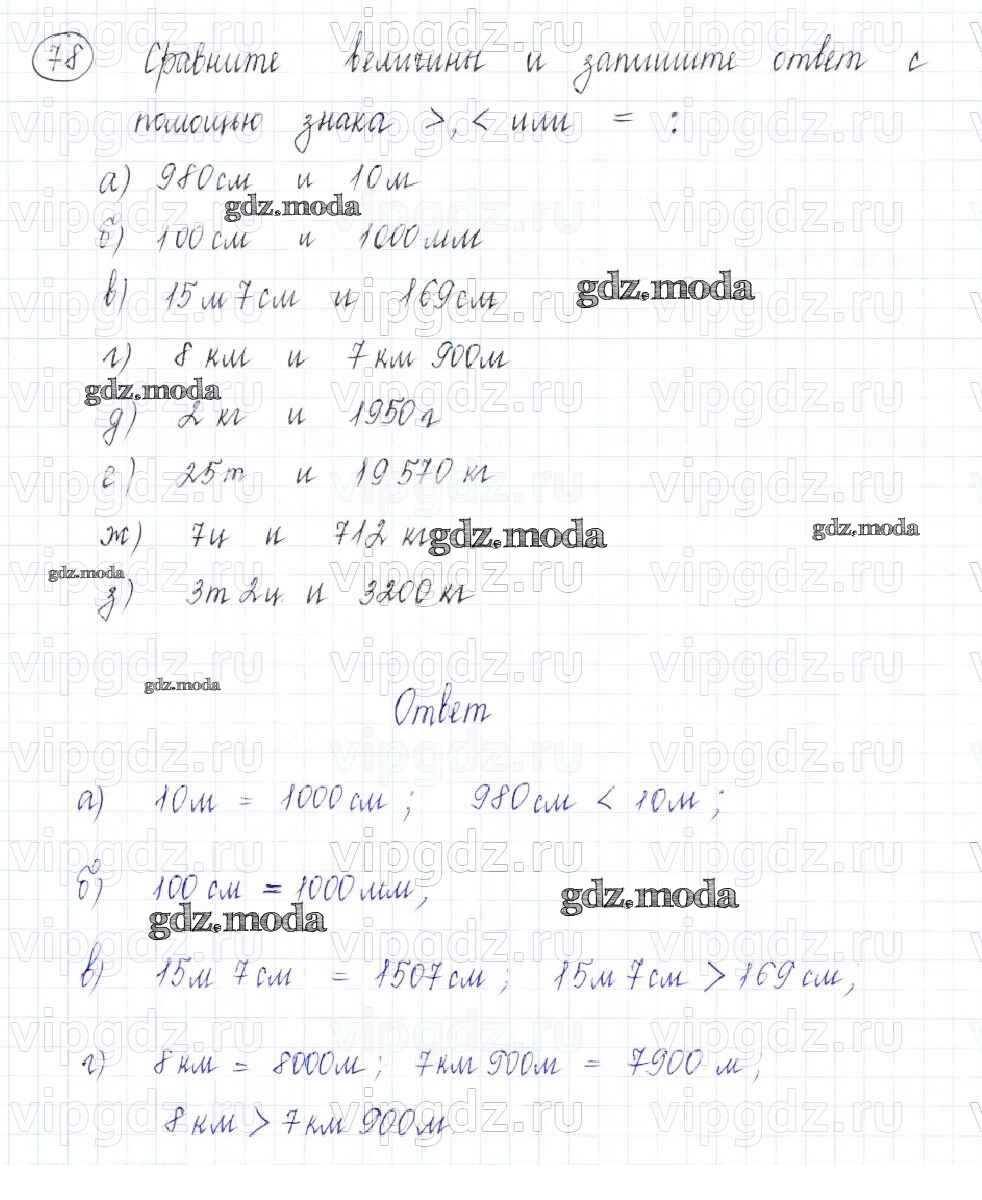 78 Сравните величины и запишите ответ с
помощью знака >, < или = :
а) 980 см и 10 м
gdz.moda
б) 100 см и 1000 мм
в) 15 м 7 см и 169 см
gdz.moda
г) 8 км и 7 км 900 м
gdz.moda
д) 2 кг и 1950 г
е) 25 т и 19 570 кг
ж) 7 ц и 712 кг
gdz.moda
gdz.moda
gdz.moda
з) 3 т 2 ц и 3200 кг
gdz.moda
Ответ
а) 10 м = 1000 см ; 980 см < 10 м ;
б) 100 см = 1000 мм,
gdz.moda
gdz.moda
в) 15 м 7 см = 1507 см ; 15 м 7 см > 169 см,
г) 8 км = 8000 м ; 7 км 900 м = 7900 м ;
8 км > 7 км 900 м
vipgdz.ru